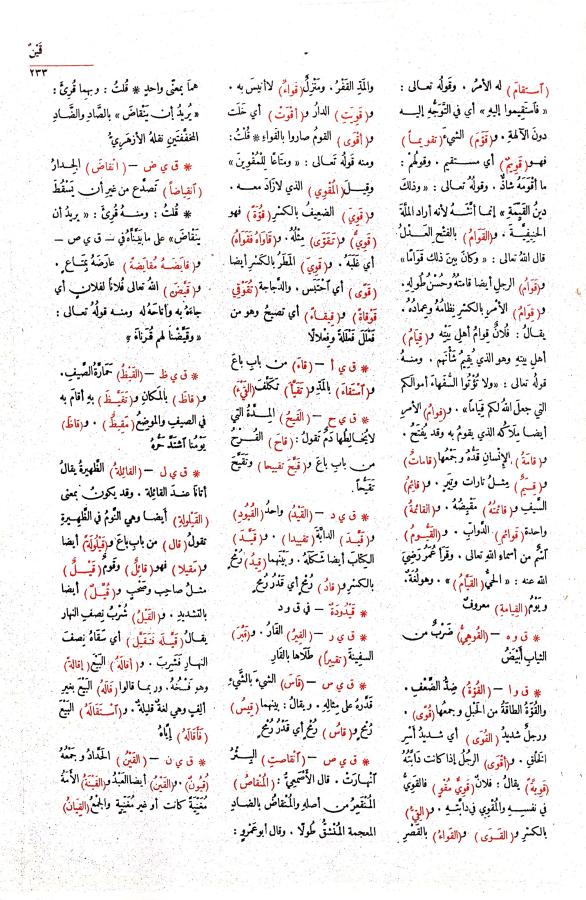 قَيْنٌ
٢٣٣
(آستقامَ) له الأمرُ . وقولُهُ تعالى :
« فآستَقيموا إليهِ » أي في التَّوَجُّهِ إليـه
دونَ الآلهةِ . و(قَوَّمَ) الشيءَ (تقويمـاً)
فهـو (قَويمٌ) أي مستقيم . وقولُهُـم :
ما أَقْوَمَهُ شاذٌّ . وقولُهُ تعالى : « وذلكَ
دينُ القَيِّمَةِ » إنمـا أنَّثَـهُ لأنه أراد المِلَّةَ
الحنيفيَّـةَ ، و(القَوَامُ) بالفَتْحِ العَـدْلُ
قال اللهُ تعـالى : « وكانَ بينَ ذلكَ قَوَامًا »
و(قَوامُ) الرجلِ أيضا قامتُهُ وحُسْنُ طُولِهِ .
و(قِوامُ) الأمْرِ بالكسْرِ نِظامُهُ وعِمادُهُ .
يقـالُ : فُلانٌ قِوامُ أهلِ بَيْتِهِ و(قِيَامُ)
أهلِ بيتهِ وهو الذي يُقِيمُ شأنَهـم . ومنـهُ
قولُهُ تعالى : «ولا تُؤْتُوا السُّفهاءَ أموالَكم
التي جعلَ اللهُ لكم قِيَاماً» . و(قِوامُ) الأمرِ
أيضـا مِلاكُه الذي يقومُ به وقد يُفْتَحُ .
و(قامَةُ) الإنْسانِ قَدُّهُ وجَمْعُها (قاماتٌ)
و(قِيَمٌ) مِثْـلُ تاراتٍ وتِيَرٍ . و(قائمُ)
السَّيفِ و(قائمَتُهُ) مَقْبِضُهُ . و(القائمةُ)
واحدةُ (قوائمِ) الدَّوابِّ . و(القَيُّـومُ)
آسْمٌ من أسماءِ اللهِ تعالى . وقرأ عُمَرُ رَضِيَ
اللهُ عنه : « الحيُّ (القَيَّامُ) » . وهو لُغَةٌ.
ويَوْمُ (القِيامة) معروفٌ
* ق و ه — (القُوهِيُّ) ضَرْبٌ من
الثيابِ أبْيَضُ
* ق و ا — (القُوَّةُ) ضِدُّ الضَّعْفِ .
والقُوَّةُ الطاقَةُ من الحَبْلِ وجمعُها (قُوًى) .
ورجلٌ شديدُ (القُوَى) أي شـديدُ أَسْرِ
الخَلْقِ . و(أَقْوَى) الرجُلُ إذا كانت دابَّتُهُ
(قَوِيَّةً) يقالُ : فلانٌ (قَوِيٌّ مُقْوٍ) فالقَوِيُّ
في نفسـهِ والمُقْوِي في دابتِـهِ . و(القِيُّ)
بالكسْرِ و(القَـوَى) و(القَواءُ) بالقَصْرِ
والمدِّ القَفْرُ. ومَنْزِلٌ (قَواءٌ) لا أنيسَ به .
و(قَوِيَتِ) الدارُ و(أَقْوَتْ) أي خَلَت
و(أَقْوَى) القومُ صاروا بالقَواءِ * قُلْتُ :
ومنه قولُهُ تعـالى : « ومتاعًا للمُقْوِينَ »
وقيـلَ (المُقْوِي) الذي لا زادَ معـه .
و(قَوِيَ) الضعيفُ بالكسْرِ (قُوَّةً) فهو
(قَوِيٌّ) و(تَقَوَّى) مِثْلُهُ. و(قاوَاهُ فقَوَاهُ)
أي غَلَبَهُ . و(قَوِيَ) المطَرُ بالكَسْرِ أيضا
(قَوًى) أي آحْتَبَسَ . والدَّجاجةُ (تُقَوْقِي)
(قَوْقاةً) و(قِيقـاءً) أي تصيحُ وهو من
فَعْلَلَ فَعْلَلَةً وفِعْلالًا
* ق ي أ — (قاءَ) من بابِ باعَ
و(آسْتَقاءَ) بالمدِّ و(تَقَيَّأَ) تَكَلَّفَ (القَيْءَ)
* ق ي ح — (القَيْحُ) المِـدَّةُ التي
لا يُخالِطُها دَمٌ تقولُ : (قاحَ) القُـرْحُ
من بابِ باعَ و(قَيَّحَ تقييحا) وتَقَيَّحَ
تَقَيُّحاً .
* ق ي د — (القَيْدُ) واحدُ (القُيودِ)
و(قَيَّدَ) الدابَّةَ (تقييدا) . و(قَيَّـدَ)
الكتابَ أيضا شَكَلَهُ . وبينَهما (قِيدُ) رُمْحٍ
بالكسْرِ و(قادُ) رُمْحٍ أي قَدْرُ رُمْحٍ
* قَيْدُودَةٌ — في ق و د
* ق ي ر — (القِيرُ) القارُ . و(قَيَّرَ)
السفينةَ (تقييراً) طَلَاها بالقارِ
* ق ي س — (قَاسَ) الشيءَ بالشَّيْءِ
قَدَّرهُ على مِثالِهِ . ويقالُ : بينَهما (قِيسُ)
رُمْحٍ و(قاسُ) رُمْحٍ أي قَدْرُ رُمْحٍ
* ق ي ص — (آنقاصتِ) البِـئْرُ
آنْهارتْ . قال الأَصْمَعِيُّ : (المُنقاصُ)
المُنْقَعِرُ من أصلِهِ والمُنْقاضُ بالضـادِ
المعجمةِ المُنْشَقُّ طُولًا . وقال أبو عَمْرٍو :
همـا بمعنًى واحدٍ * قُلْتُ : وبهما قُرِئَ :
« يُريدُ أن يَنْقاضَ » بالصَّادِ والضَّادِ
المخفَّفَتَينِ نقلَهُ الأزهَرِيُّ
* ق ي ض — (آنقاضَ) الجِـدارُ
(آنقِياضاً) تَصدَّع من غيرِ أن يَسْقُطَ
* قُلْتُ : ومنـهُ قُرِئَ : « يريدُ أن
يَنْقاضَ » على ما بَيَّنَّاهُ في — ق ي ص —
و(قايَضَـهُ مُقايَضةً) عارَضَهُ بِمَتاعٍ .
و(قَيَّضَ) اللهُ تعالى فُلانًا لفلانٍ أي
جاءَهُ به وأتاحَهُ له ومنه قولُهُ تعـالى :
« وقَيَّضْنا لهم قُرَناءَ »
* ق ي ظ — (القَيْظُ) حَمَارَّةُ الصَّيفِ.
و(قاظَ) بالمكانِ و(تَقَيَّـظَ) به أقام به
في الصيفِ والموضعُ (مَقِيظٌ) . و(قاظَ)
يَوْمُنا آشتَدَّ حَرُّهُ
* ق ي ل — (القائلةُ) الظَّهيرةُ يقالُ
أتانا عنـدَ القائلةِ . وقد يكونُ بمعنى
(القَيْلُولةِ) أيضا وهي النَّوْمُ في الظَّهـيرةِ
تقولُ (قالَ) من بابِ باعَ و(قَيْلولةً) أيضا
و(مَقِيلا) فهو (قائلٌ) وقومٌ (قَيْـلٌ)
مثلُ صاحبٍ وصَحْبٍ و(قُيَّلٌ) أيضا
بالتشديدِ . و(القَيْلُ) شُرْبُ نِصفِ النهارِ
يقـالُ (قَيَّلَهُ فتَقَيَّلَ) أي سَقَاهُ نِصفَ
النهارِ فشَرِبَ . و(أقالَهُ) البَيْعَ (إقالةً)
وهو فَسْخُهُ . وربمـا قالوا (قالَهُ) البَيْعَ بغيرِ
ألفٍ وهي لُغَةٌ قليلةٌ . و(آستَقالَهُ) البَيْعَ
(فأقالَهُ) إيَّاهُ
* ق ي ن — (القَيْنُ) الحَدَّادُ وجمعُهُ
(قُيُونٌ) . و(القَيْنُ) أيضا العبدُ و(القَيْنَةُ) الأَمَةُ
مُغَنِّيَةً كانت أو غيرَ مُغَنِّيةٍ والجمعُ (القِيَانُ)